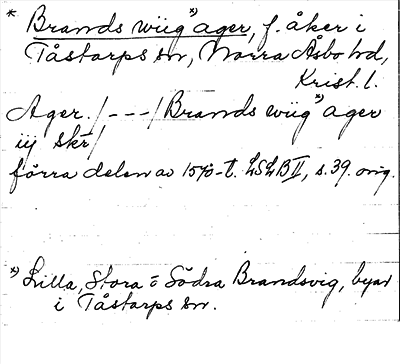 * Brands wiig *) ager, f. åker i
Tåstarps sn, Norra Åsbo hd,
Krist. l.
Ager. /---/ Brands wiig *) ager
iij skr /
förra delen av 1570-t. LSLB II, s. 39. orig.
*) Lilla, Stora o Södra Brandsvig, byar
i Tåstarps sn.